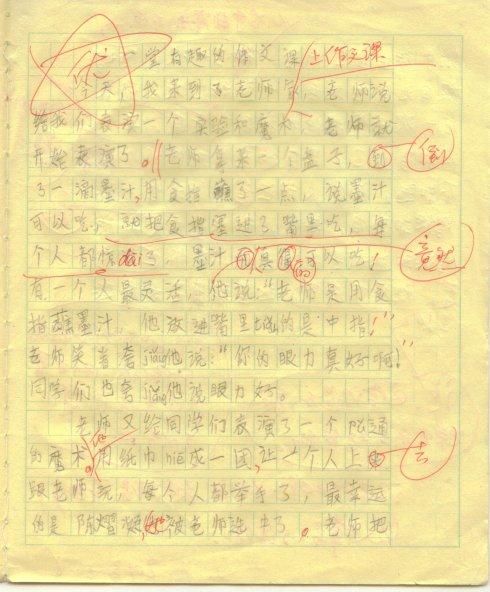 优 一堂有趣的作文课 上作文课
今天,我来到了老师家,老师说
给我们表演一个实验和魔术,老师就
开始表演了。老师拿来一个盘子,倒 倒
了一滴墨汁,用食指蘸了一点,说墨汁
可以吃,就把食指塞进了嘴里吃,每
个人都惊呆了,墨汁 真的可以吃! 竟然
有一个人最灵活,他说:“老师是用食
指蘸墨汁,他放进嘴里 的是中指!”
老师笑着夸jiǎng他说:“你的眼力真好啊!”
同学们也夸jiǎng他说眼力好。
老师又给同学们表演了一个pǔ通
的魔术。他用纸巾niē成一团,让一个人上去 去
跟老师玩,每个人都举手了,最幸运
的是陈熠 ,她被老师选中了。老师把